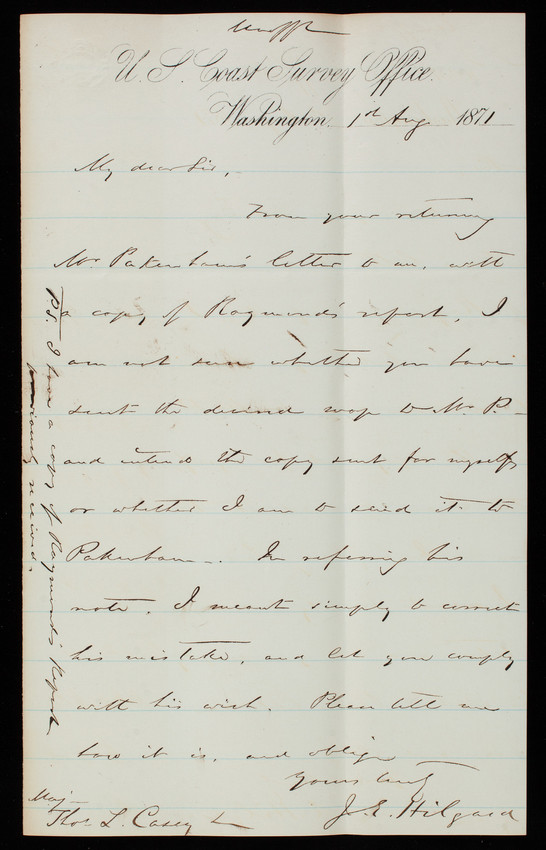 U. S. Coast Survey Office.
Washington, 1st Aug 1871
My dear Sir,
From your returning
Mr. Pakenham's letter to me, with
a copy of Raymond's report, I
am not sure whether you have
sent the desired map to Mr. P.—
and intend the copy sent for myself,
or whether I am to send it to
Pakenham—. In referring his
note, I meant simply to correct
his mistake, and let you comply
with his wish. Please tell me
how it is, and oblige
Yours truly
J. E. Hilgard
Maj—
Thos L. Casey
P.S. I have a copy of Raymond's Report
previously received.